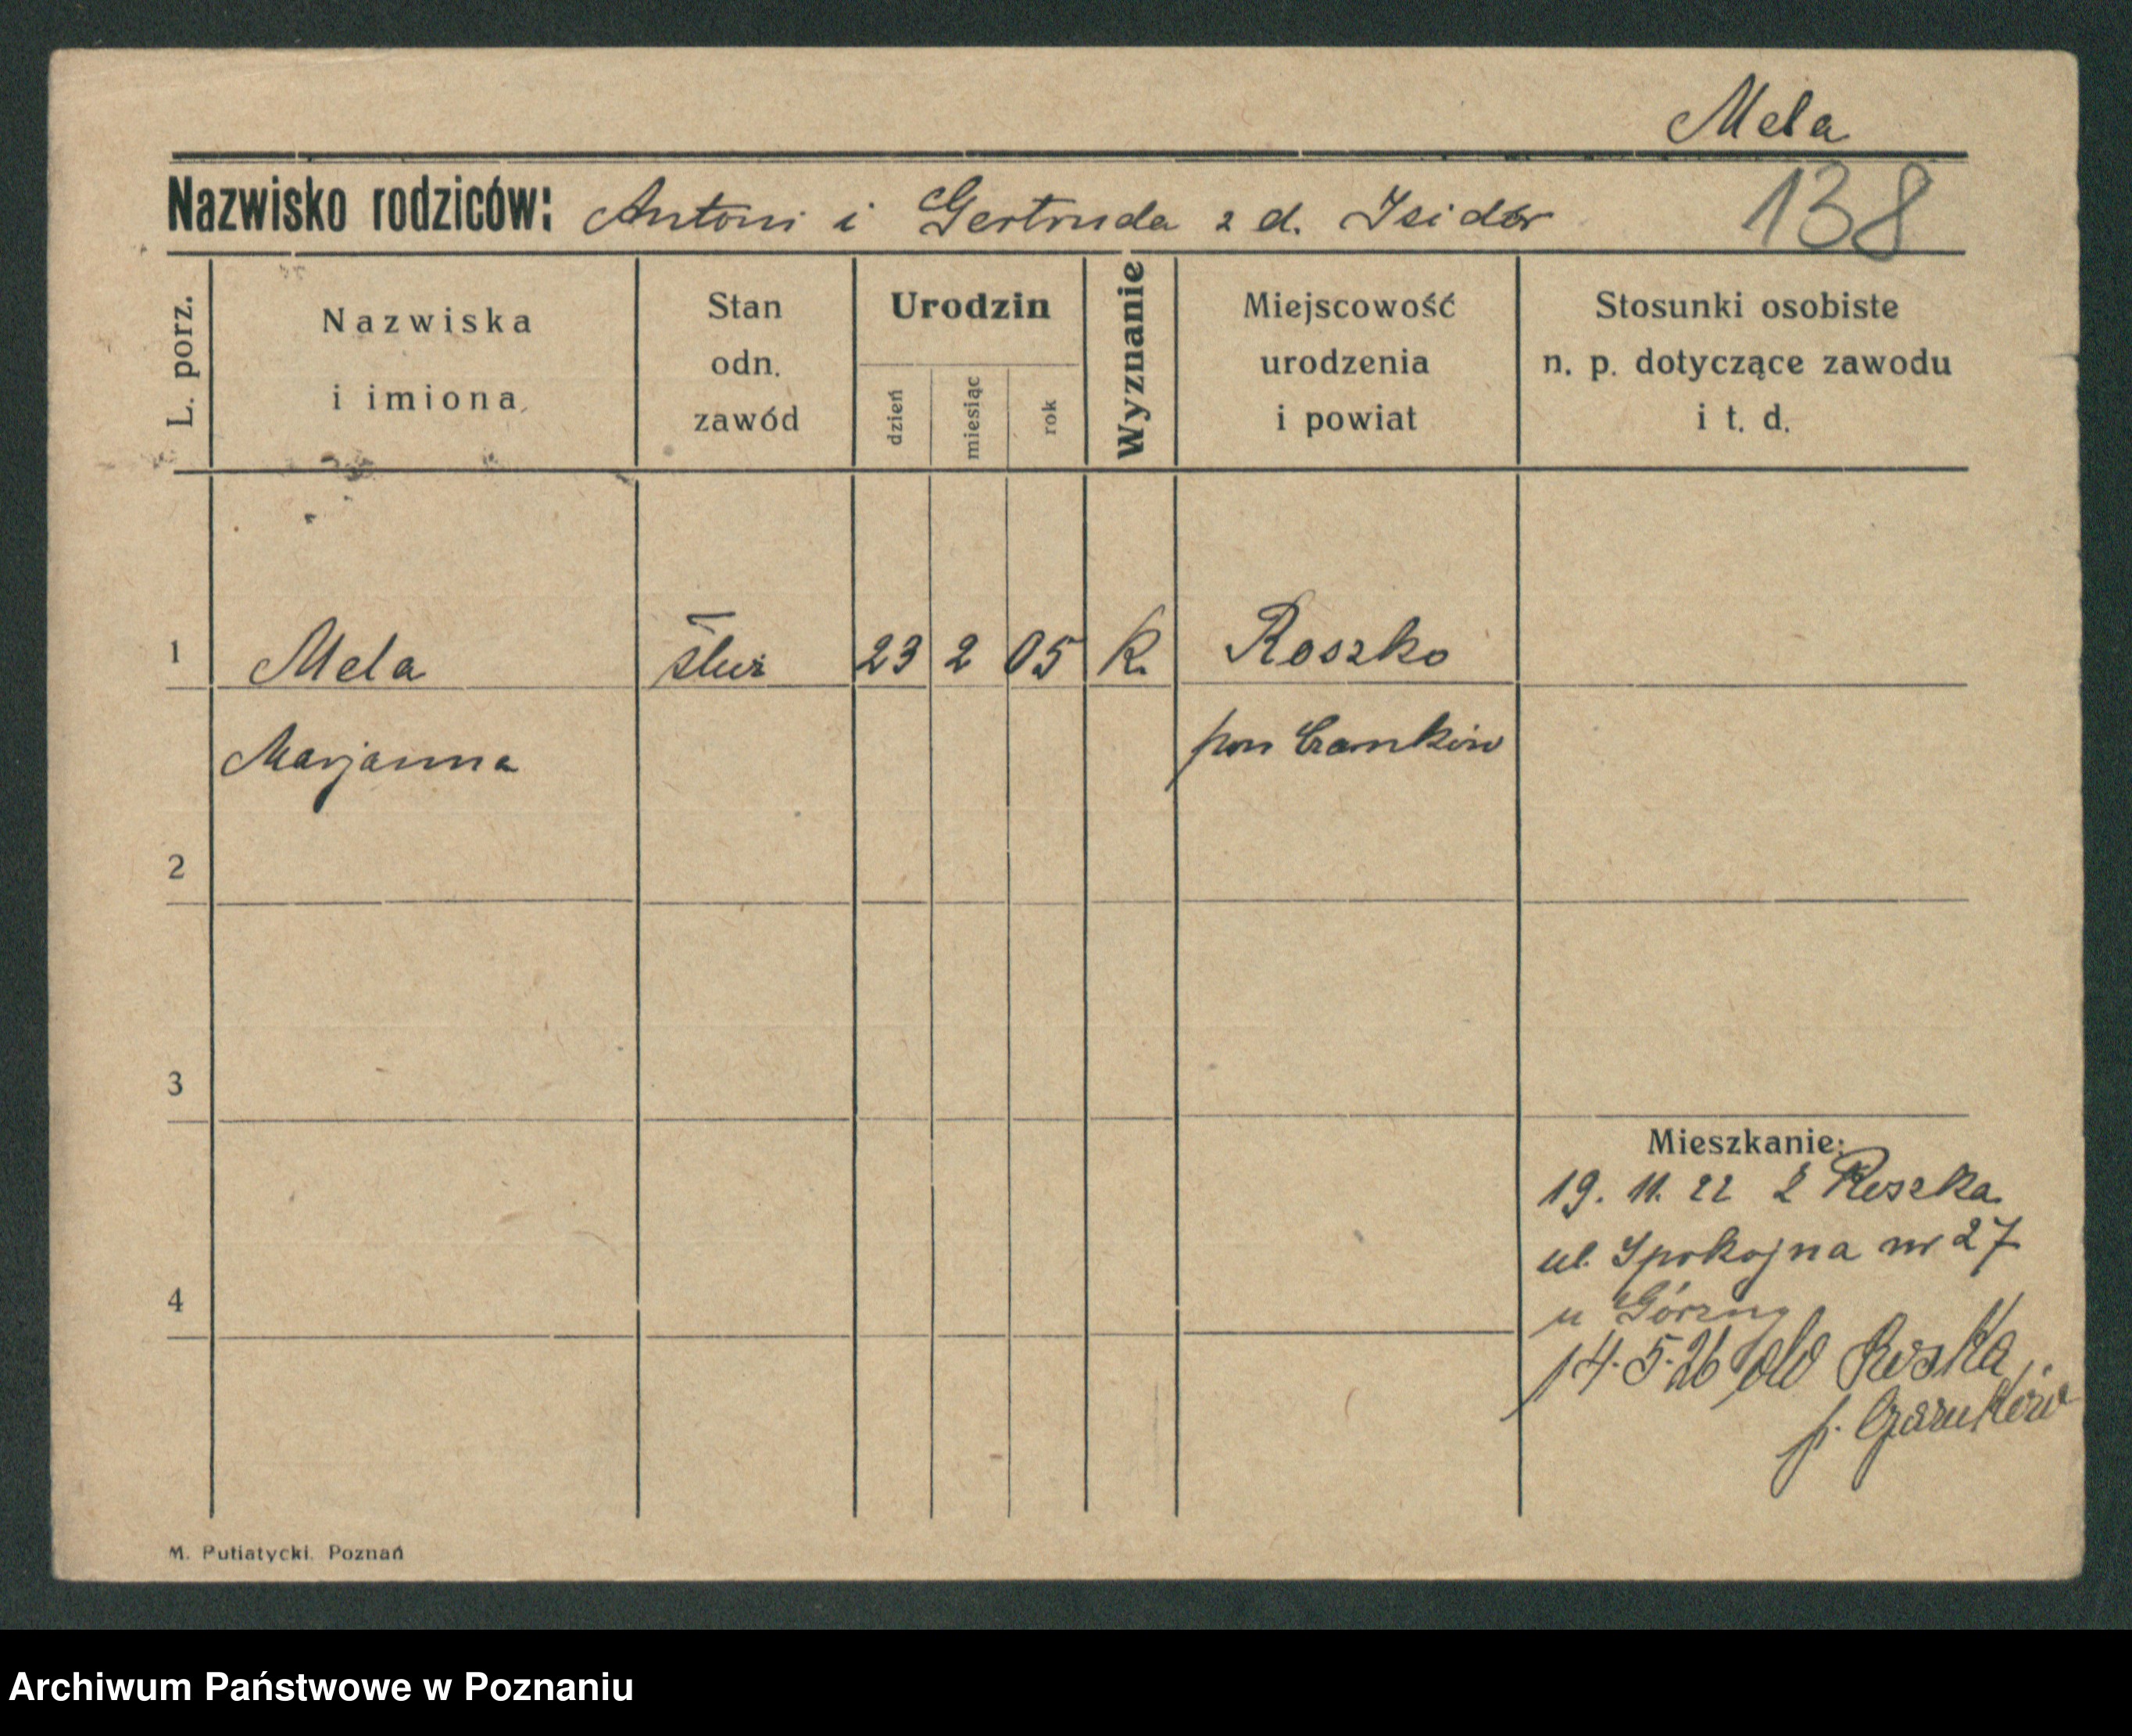 Mela
Nazwisko rodziców: Antoni i Gertruda z d. Isidor 138
L. porz.
Nazwiska
i imiona
Stan
odn.
zawód
Urodzin
dzień
miesiąc
rok
Wyznanie
Miejscowość
urodzenia
i powiat
Stosunki osobiste
n. p. dotyczące zawodu
i t. d.
1 Mela służ 23 2 05 K. Roszko
Marjanna pow Czarnków
2
3
Mieszkanie:
19. 11. 22 z Roszka
ul. Spokojna nr 27
u
4
14. 5. 26 do Roska
p. Czarnków
M. Putiatycki. Poznań
Archiwum Państwowe w Poznaniu